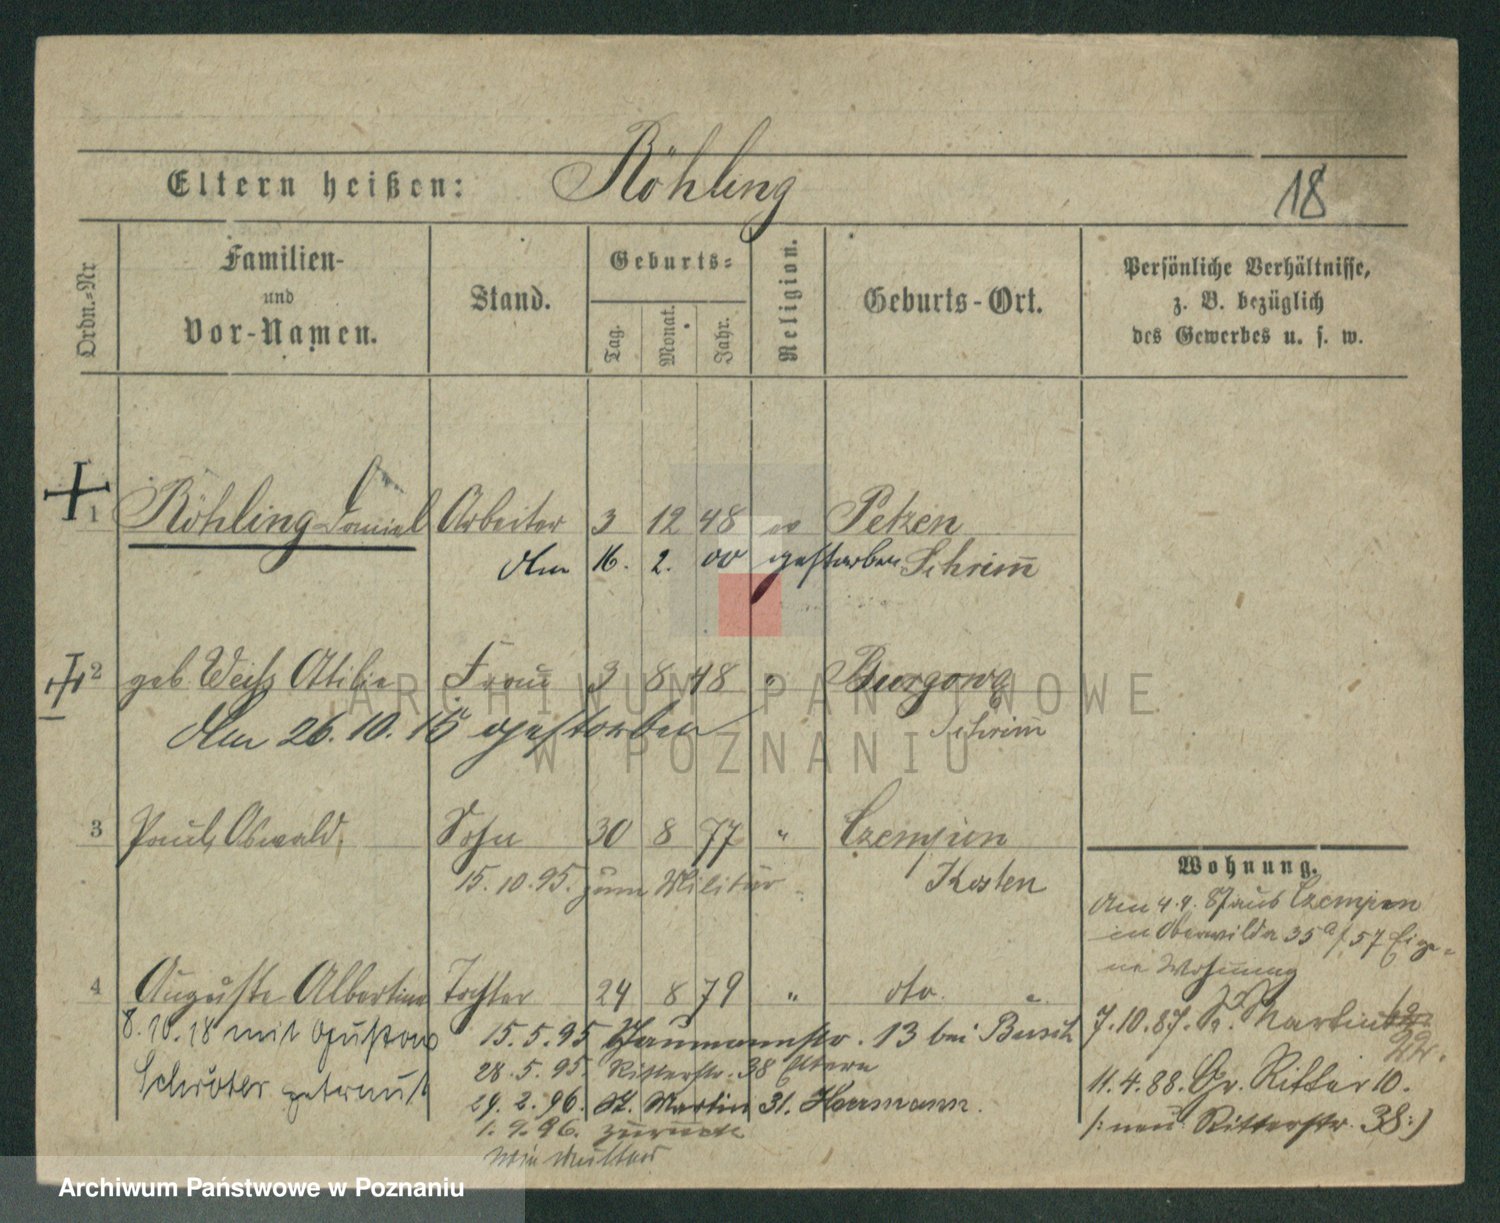 Eltern heißen: Röhling
18
Ordn.=Nr
Familien-
und
Vor-Namen.
Stand.
Geburts=
Tag.
Monat.
Jahr.
Religion.
Geburts-Ort.
Persönliche Verhältnisse,
z. B. bezüglich
des Gewerbes u. s. w.
1 Röhling Daniel Arbeiter 3 12 48 ev Petzen
Am 16. 2. 00 gestorben Schrim̅
2 geb Weiß Ottilie Frau 3 8 48 " Burgowo
Am 26.10.15 gestorben Schrim̅
3 Paul, Oswald, Sohn 30 8 77 " Czempin
15.10.95. zum Militär Kosten
4 Auguste Albertine Tochter 24 8 79 " dto. "
8.10.18 mit Gustav
Schröter getraut
15.5.95 Naumannstr. 13 bei Busch
28.5.95. Ritterstr. 38 Eltern
29.2.96. St. Martin 31. Herrmann.
1.9.96. zurück
Wie Mutter
Wohnung.
Am 4.9. 87 aus Czempin
in Oberwilda 35a/57 Eige-
ne Wohnung
7.10.87. St. Martin
22.
11.4.88. Gr. Ritter 10.
/: neu Ritterstr. 38 :/
ARCHIWUM PAŃSTWOWE
W POZNANIU
Archiwum Państwowe w Poznaniu